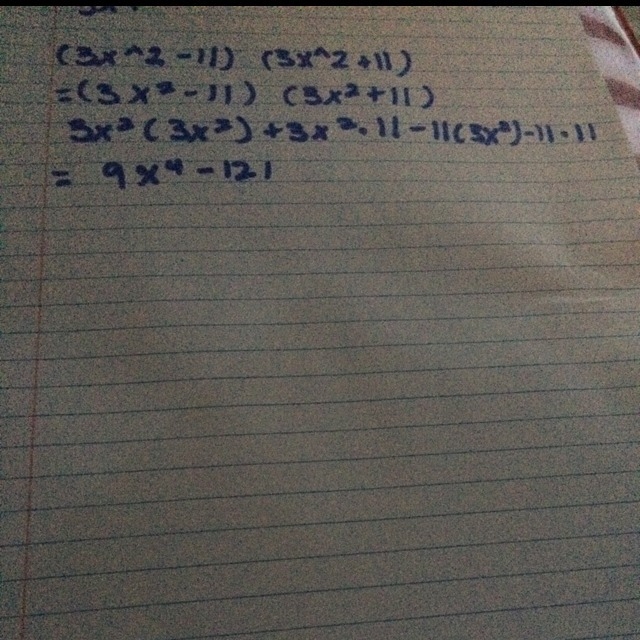 (3x^2-11) (3x^2+11)
=(3x²-11) (3x²+11)
3x²(3x²)+3x²·11-11(3x²)-11·11
= 9x⁴-121